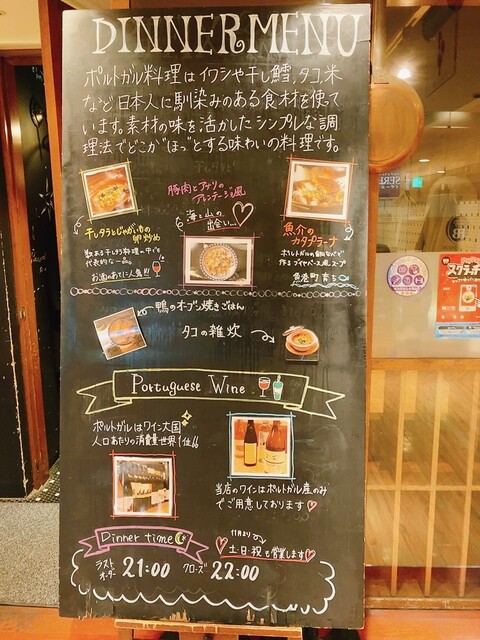 DINNER MENU
ポルトガル料理はイワシや干し鱈、タコ、米
など日本人に馴染みのある食材を使って
います。素材の味を活かしたシンプルな調
理法でどこか"ほっ"とする味わいの料理です。
干しタラとじゃがいもの
卵炒め
数ある干しタラ料理の中でも
代表的な一品。
お酒のあてに人気!!
豚肉とアサリの
アレンテージョ風
海と山の
出会い…
魚介の
カタプラーナ
ポルトガルの銅なべで
作るブイヤベース風スープ
鴨のオーブン焼きごはん
タコの雑炊
Portuguese Wine
ポルトガルはワイン大国
人口あたりの消費量世界1位
当店のワインはポルトガル産のみ
でご用意しております
Dinner time
ラスト
オーダー 21:00 クローズ 22:00
11月より
土・日・祝も営業します